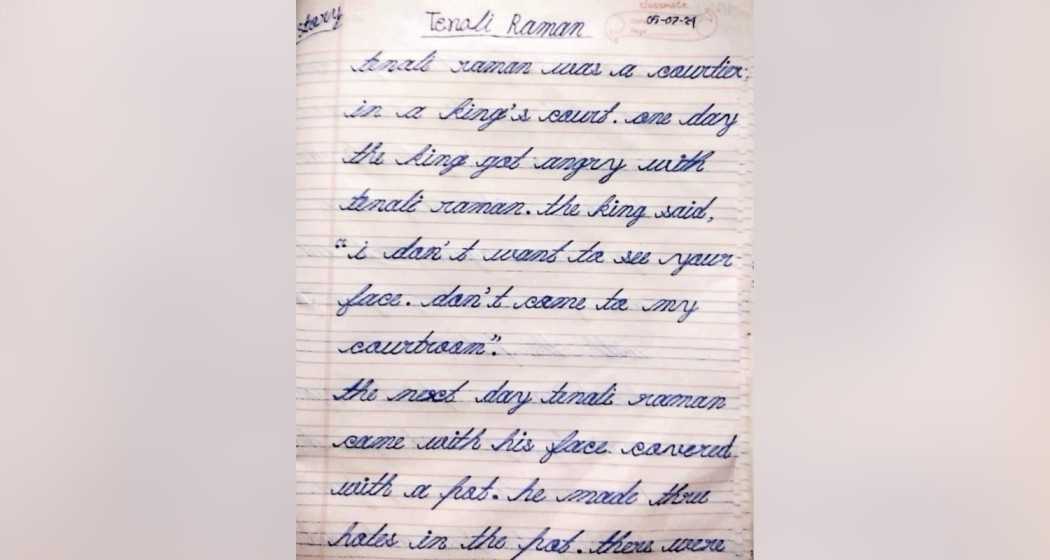 story
Tenali Raman
classmate
05-07-21
tenali raman was a courtier
in a king's court. one day
the king got angry with
tenali raman. the king said,
"i don't want to see your
face. don't come to my
courtroom".
the next day tenali raman
came with his face covered
with a pot. he made three
holes in the pot. there were